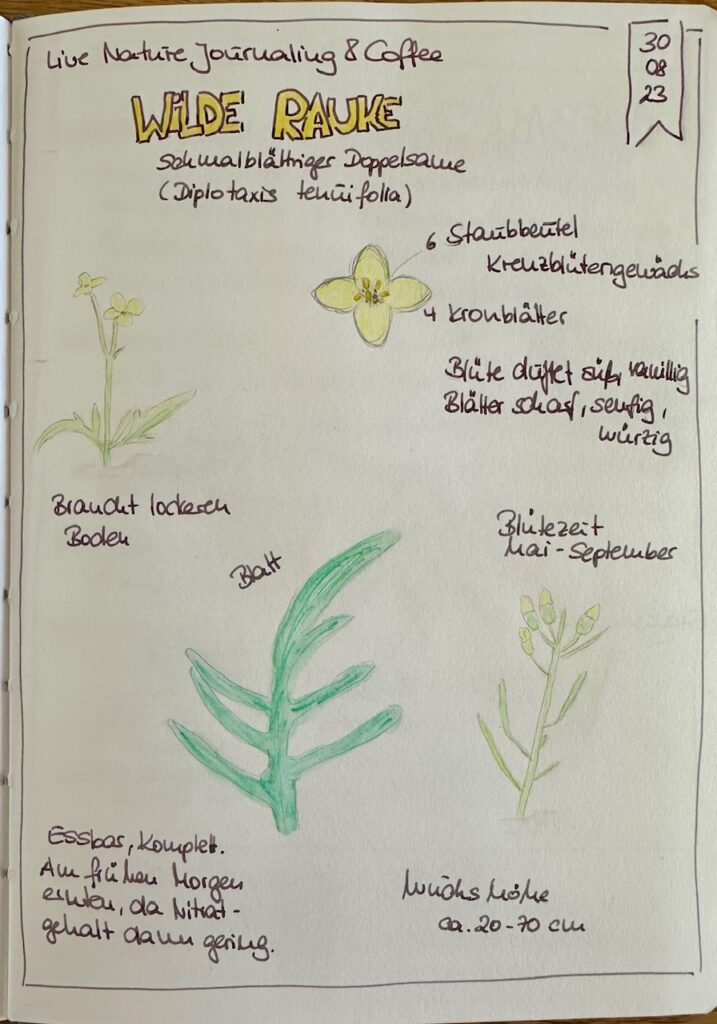 Live Nature Journaling & Coffee
30
08
23
WILDE RAUKE
Schmalblättriger Doppelsame
(Diplotaxis tenuifolia)
6 Staubbeutel
Kreuzblütengewächs
4 Kronblätter
Blüte duftet süß, vanillig
Blätter scharf, senfig,
würzig
Braucht lockeren
Boden
Blatt
Blütezeit
Mai - September
Essbar, komplett.
Am frühen Morgen
ernten, da Nitrat-
gehalt dann gering.
Wuchshöhe
ca. 20-70 cm